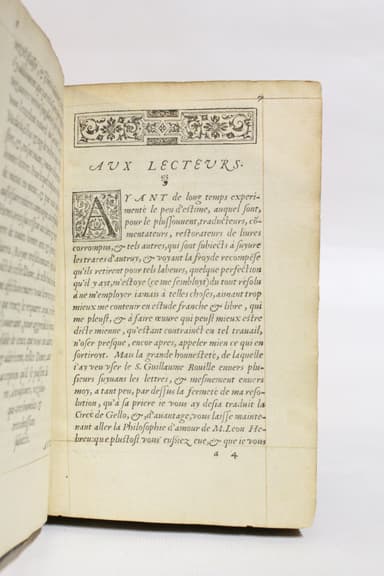 AUX LECTEURS.
AYANT de long temps experi-
menté le peu d'estime, auquel sont,
pour le plussouuent, traducteurs, cō-
mentateurs, restorateurs de liures
corrompus, & tels autres, qui sont subiects à suyure
les traces d'autruy, & voyant la froyde recompēse
qu'ils retirent pour tels labeurs, quelque perfection
qu'il y ayt, m'estoye (ce me sembloyt) du tout resolu
à ne m'employer iamais à telles choses, aimant trop
mieux me contenir en estude franche & libre, qui
me pleust, & à faire œuure qui peust mieux estre
dicte mienne, qu'estant contrainct en tel trauail,
n'oser presque, encor apres, appeler mien ce qui en
sortiroyt. Mais la grande honnesteté, de laquelle
i'ay veu vser le S. Guillaume Rouille enuers plu-
sieurs suyuans les lettres, & mesmement enuers
moy, a tant peu, par dessus la fermeté de ma reso-
lution, qu'à sa priere ie vous ay desia traduit la
Circé de Gello, &, d'auantage, vous laisse mainte-
nant aller la Philosophie d'amour de M. Leon He-
breu: que plustost vous eussiez eue, & que ie vous
a 4